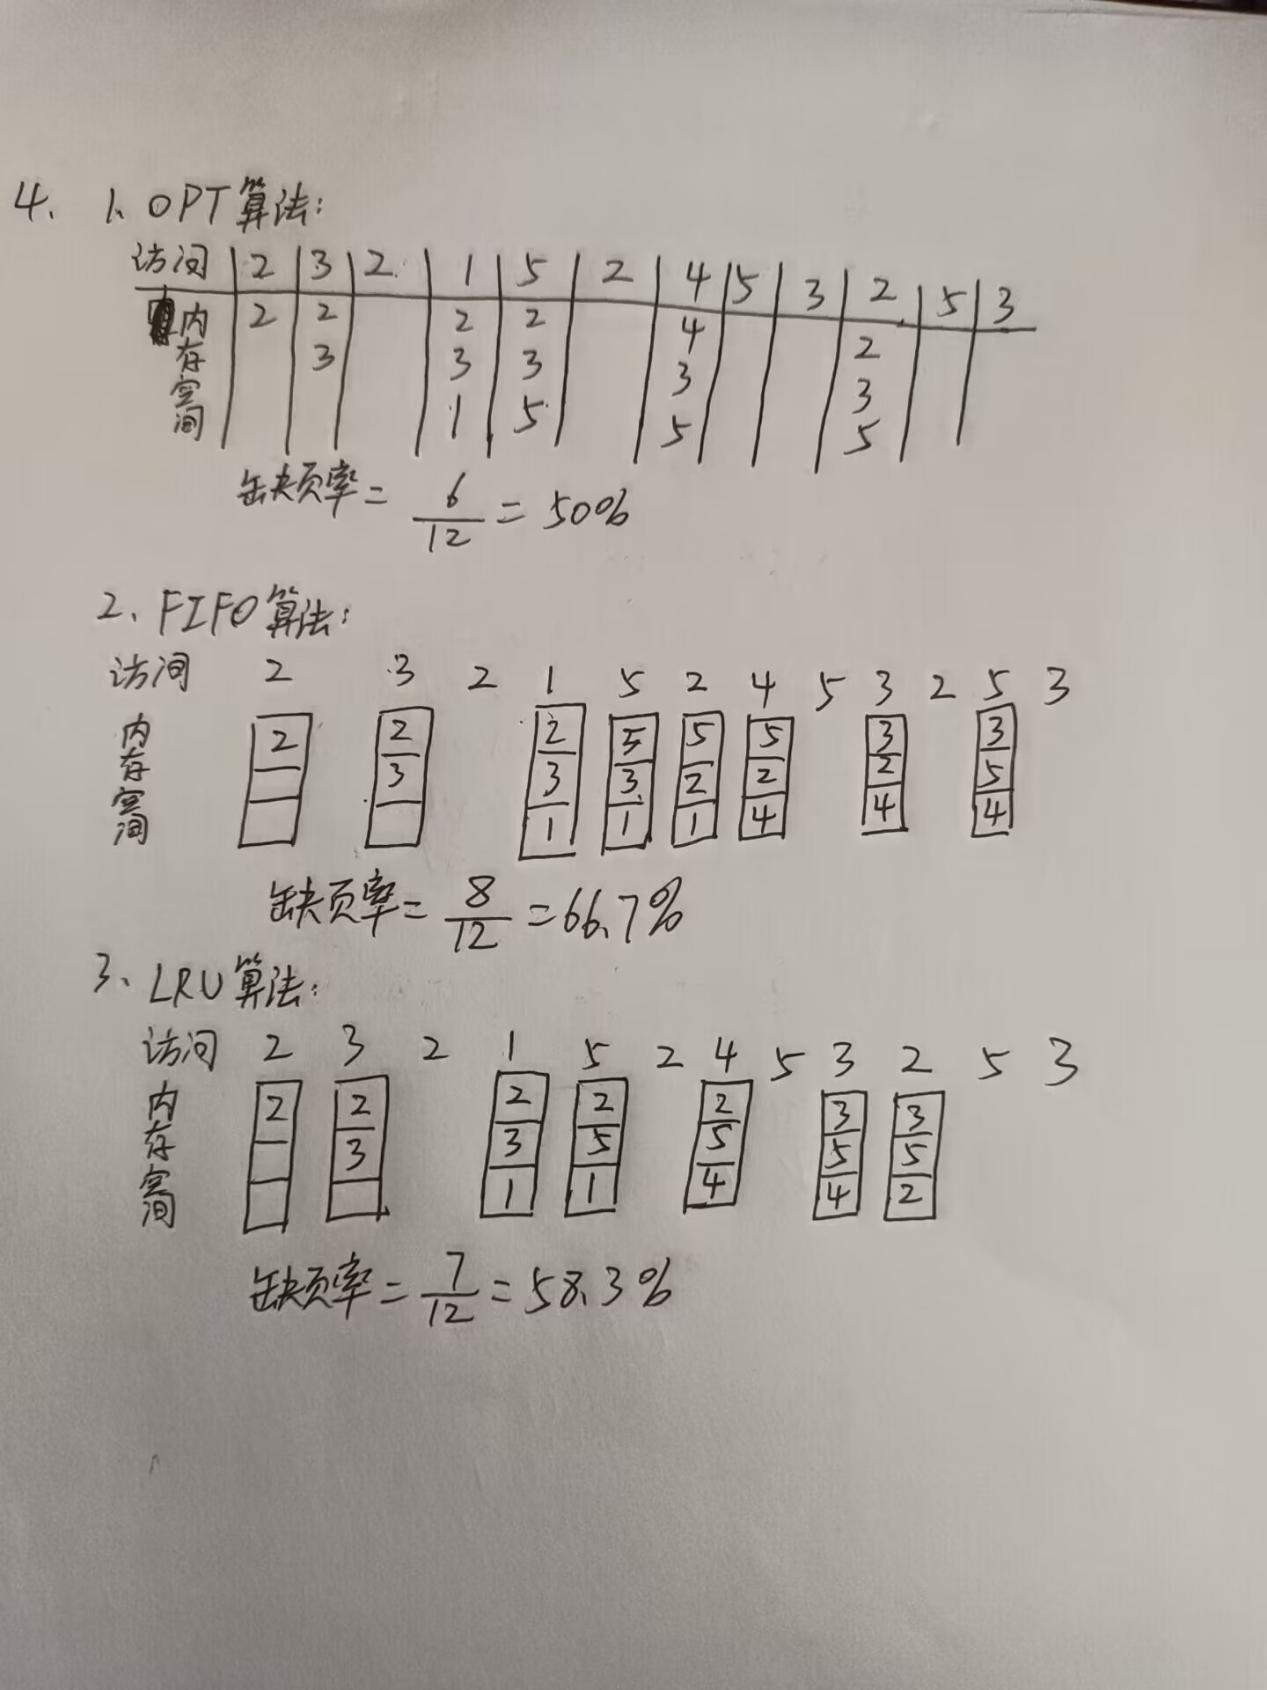 4. 1. OPT算法:
访问 2 3 2 1 5 2 4 5 3 2 5 3
内存空间 2 2 2 2 4 2
3 3 3 3 3
1 5 5 5
缺页率 = 6/12 = 50%
2. FIFO算法:
访问 2 3 2 1 5 2 4 5 3 2 5 3
内存空间 2 2 2 5 5 5 3 3
3 3 3 2 2 2 5
1 1 1 4 4 4
缺页率 = 8/12 = 66.7%
3. LRU算法:
访问 2 3 2 1 5 2 4 5 3 2 5 3
内存空间 2 2 2 2 2 3 3
3 3 5 5 5 5
1 1 4 4 2
缺页率 = 7/12 = 58.3%